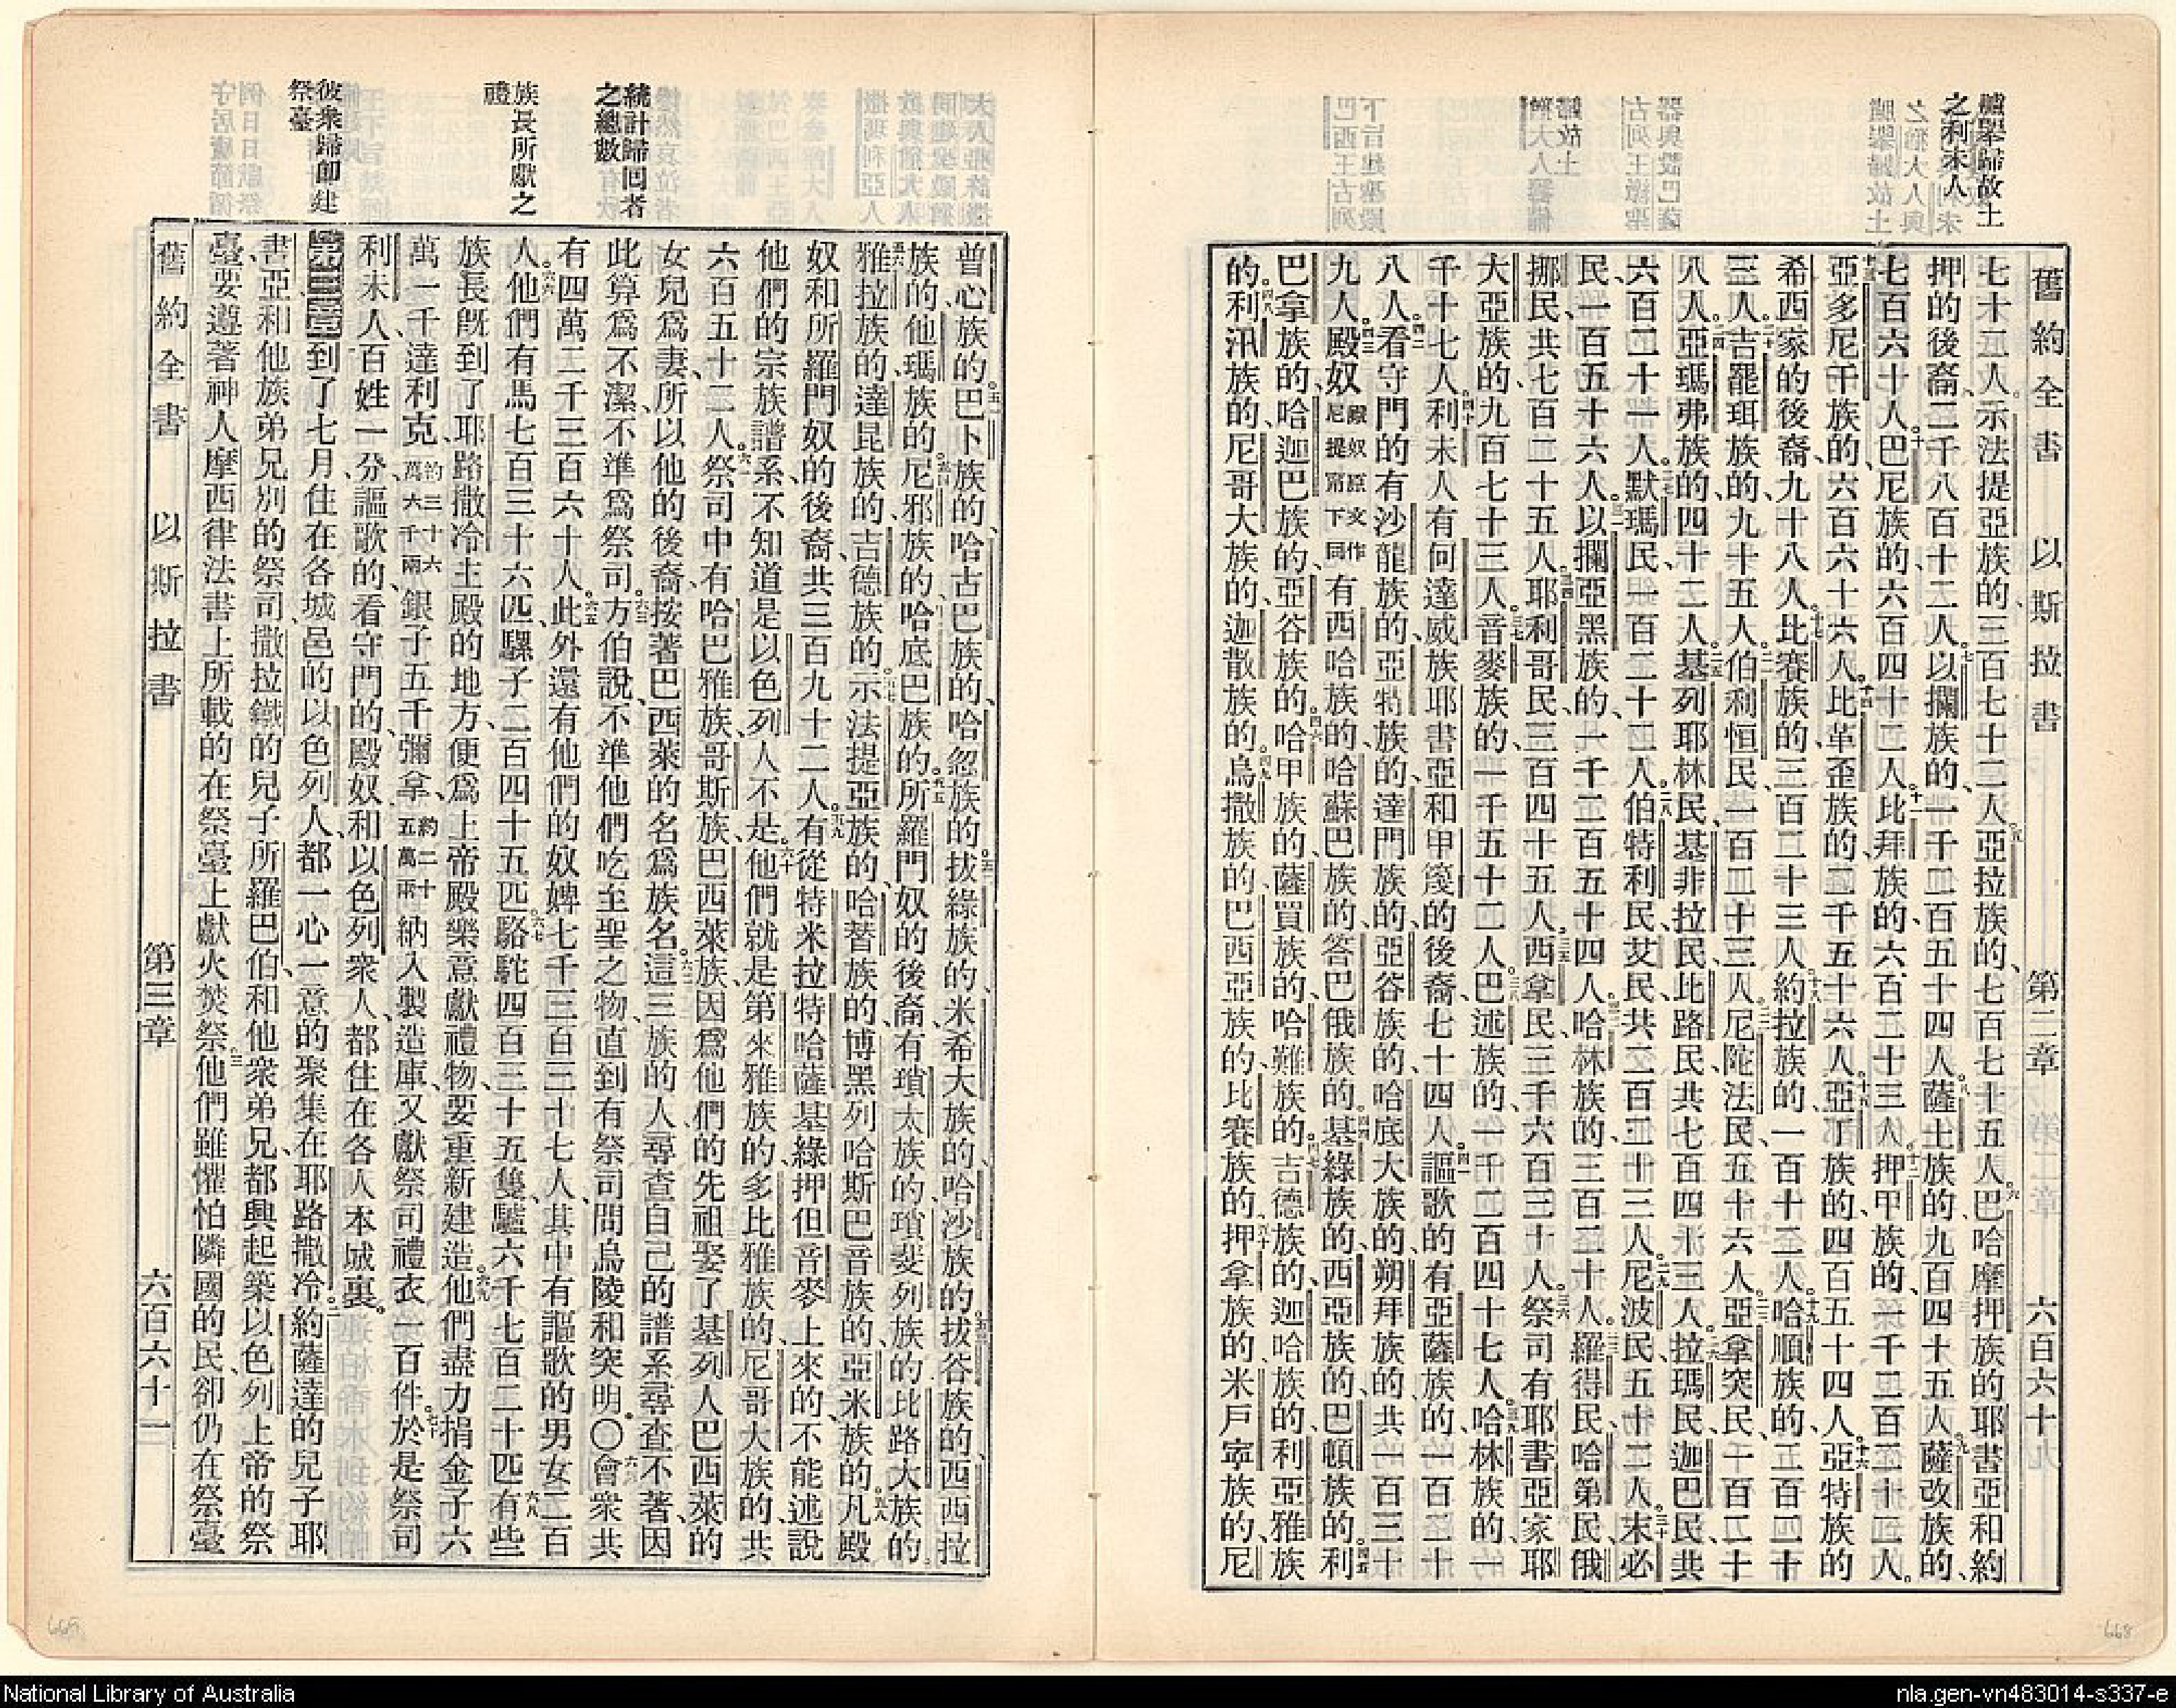 臚舉歸故土
之利未人
舊約全書 以斯拉書 第二章 六百六十
七十二人示法提亞族的三百七十二人亞拉族的、七百七十五人巴哈摩押族的耶書亞和約
押的後裔、二千八百十二人以攔族的、一千二百五十四人薩土族的九百四十五人薩改族的、
七百六十人巴尼族的、六百四十二人比拜族的、六百二十三人押甲族的、一千二百二十二人。
亞多尼干族的六百六十六人比革歪族的、二千五十六人亞丁族的、四百五十四人亞特族的
希西家的後裔、九十八人比賽族的、三百二十三人約拉族的、一百十二人哈順族的、二百二十
三人吉罷珥族的、九十五人伯利恒民、一百二十三人尼陀法民、五十六人亞拿突民、一百二十
八人亞瑪弗族的、四十二人基列耶林民、基非拉民、比路民共七百四十三人拉瑪民、迦巴民共
六百二十一人默瑪民一百二十二人伯特利民、艾民、共二百二十三人尼波民、五十二人末必
民、一百五十六人以攔亞黑族的、一千二百五十四人哈林族的、三百二十人羅得民、哈第民、俄
挪民、共七百二十五人耶利哥民、三百四十五人西拿民、三千六百三十人祭司有耶書亞家耶
大亞族的、九百七十三人音麥族的、一千五十二人巴述族的、一千二百四十七人哈林族的、一
千十七人利未人有何達威族耶書亞和甲篾的後裔、七十四人謳歌的有亞薩族的、一百二十
八人看守門的有沙龍族的、亞特族的、達門族的、亞谷族的、哈底大族的、朔拜族的共一百三十
九人殿奴殿奴原文作尼提甯下同有西哈族的、哈蘇巴族的、答巴俄族的基綠族的、西亞族的、巴頓族的、利
巴拿族的、哈迦巴族的、亞谷族的哈甲族的、薩買族的、哈難族的吉德族的、迦哈族的、利亞雅族
的利汛族的、尼哥大族的、迦散族的烏撒族的、巴西亞族的、比賽族的押拿族的、米戶寧族的、尼
統計歸回者
之總數
族長所獻之
禮
彼衆歸卽建
祭臺
普心族的巴卜族的、哈古巴族的、哈忽族的拔綠族的、米希大族的、哈沙族的拔谷族的、西西拉
族的、他瑪族的尼邪族的、哈底巴族的所羅門奴的後裔、有瑣太族的、瑣斐列族的、比路大族的、
雅拉族的、達昆族的、吉德族的示法提亞族的、哈替族的、博黑列哈斯巴音族的、亞米族的凡殿
奴和所羅門奴的後裔、共三百九十二人有從特米拉特哈薩基綠押但音麥上來的、不能述說
他們的宗族譜系不知道是以色列人不是他們就是第來雅族的、多比雅族的、尼哥大族的、共
六百五十二人祭司中有哈巴雅族、哥斯族、巴西萊族、因爲他們的先祖娶了基列人巴西萊的
女兒爲妻、所以他的後裔、按著巴西萊的名爲族名這三族的人、尋查自己的譜系、尋查不著因
此算爲不潔、不準爲祭司方伯說、不準他們吃至聖之物、直到有祭司問烏陵和突明。〇會衆共
有四萬二千三百六十人此外還有他們的奴婢七千三百三十七人、其中有謳歌的男女二百
人他們有馬七百三十六匹、騾子二百四十五匹駱駝四百三十五隻、驢六千七百二十匹有些
族長旣到了耶路撒冷主殿的地方、便爲上帝殿樂意獻禮物、要重新建造他們盡力捐金子六
萬一千達利克約三十六萬六千兩銀子五千彌拿、約二十五萬兩納入製造庫、又獻祭司禮衣一百件於是祭司
利未人、百姓一分、謳歌的、看守門的、殿奴、和以色列衆人、都住在各人本城裏。
第三章到了七月、住在各城邑的以色列人、都一心一意的聚集在耶路撒冷。約薩達的兒子耶
書亞、和他族弟兄別的祭司、撒拉鐵的兒子所羅巴伯、和他衆弟兄、都興起築以色列上帝的祭
臺、要遵著神人摩西律法書上所載的、在祭臺上獻火焚祭他們雖懼怕隣國的民、卻仍在祭臺
舊約全書 以斯拉書 第三章 六百六十一
669
668
National Library of Australia
nla.gen-vn483014-s337-e